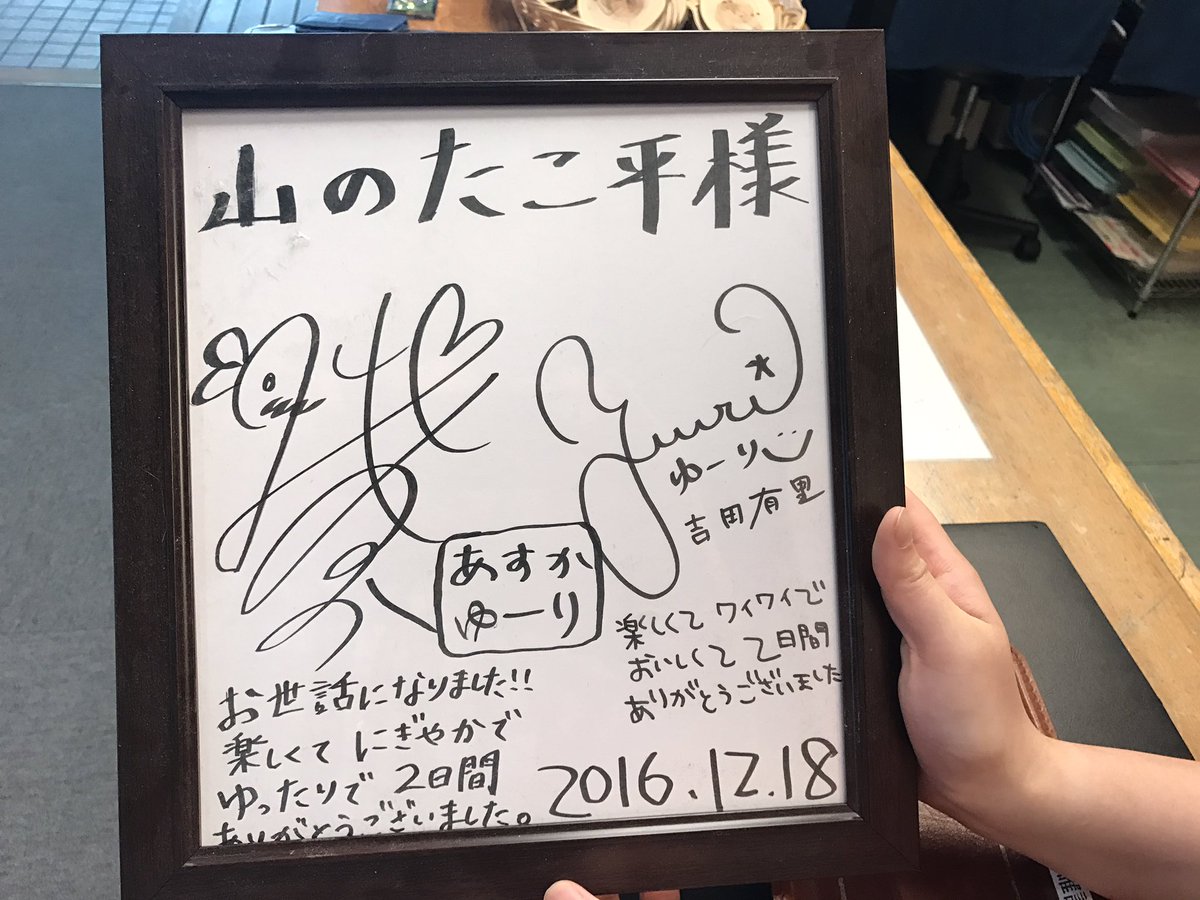 山のたこ平様
yuri
ゆーり
吉岡有里
あすか
ゆーり
楽しくて ワイワイで
おいしくて 2日間
ありがとうございました
お世話になりました!!
楽しくて にぎやかで
ゆったりで 2日間
ありがとうございました。
2016.12.18